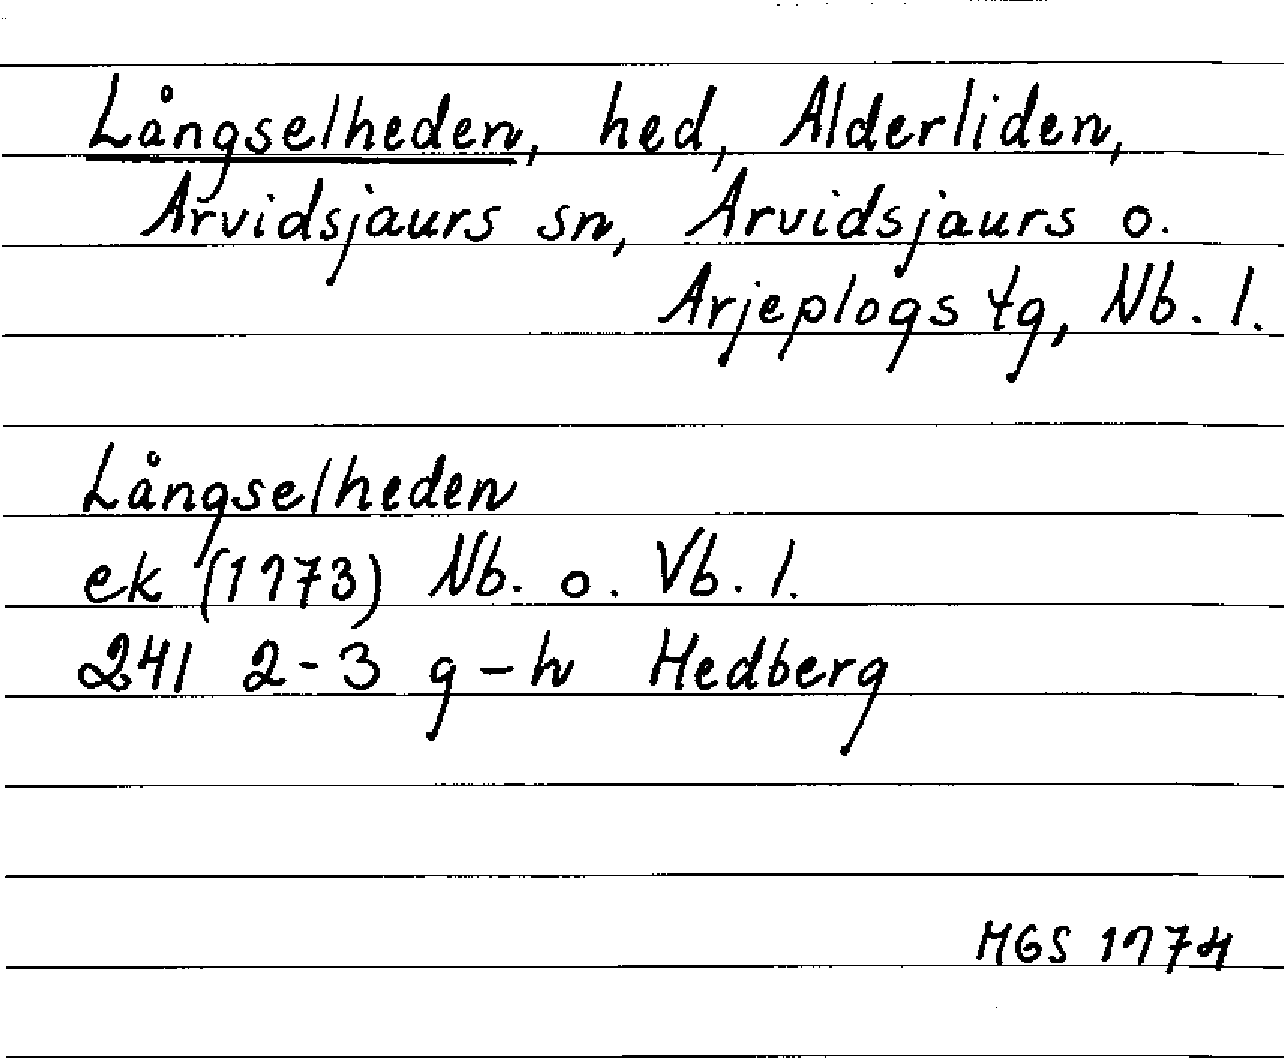 Långselheden, hed, Alderliden,
Arvidsjaurs sn, Arvidsjaurs o.
Arjeplogs tg, Nb. l.
Långselheden
ek (1973) Nb. o. Vb. l.
241 2-3 g-h Hedberg
MGS 1974